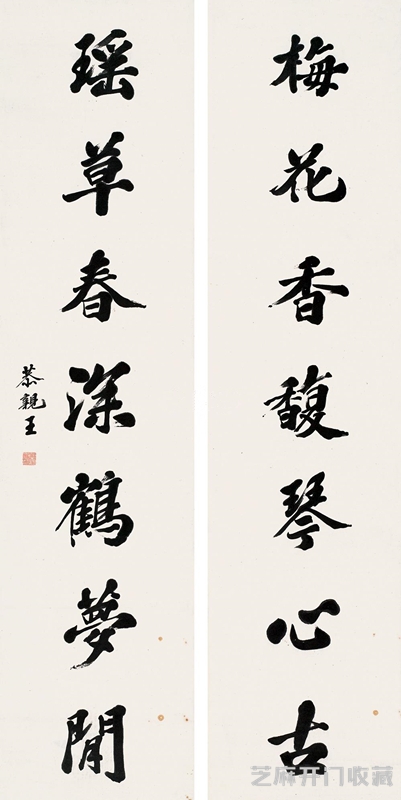 梅花香馥琴心古
瑶草春深鶴夢閒
恭親王
芝麻开门收藏